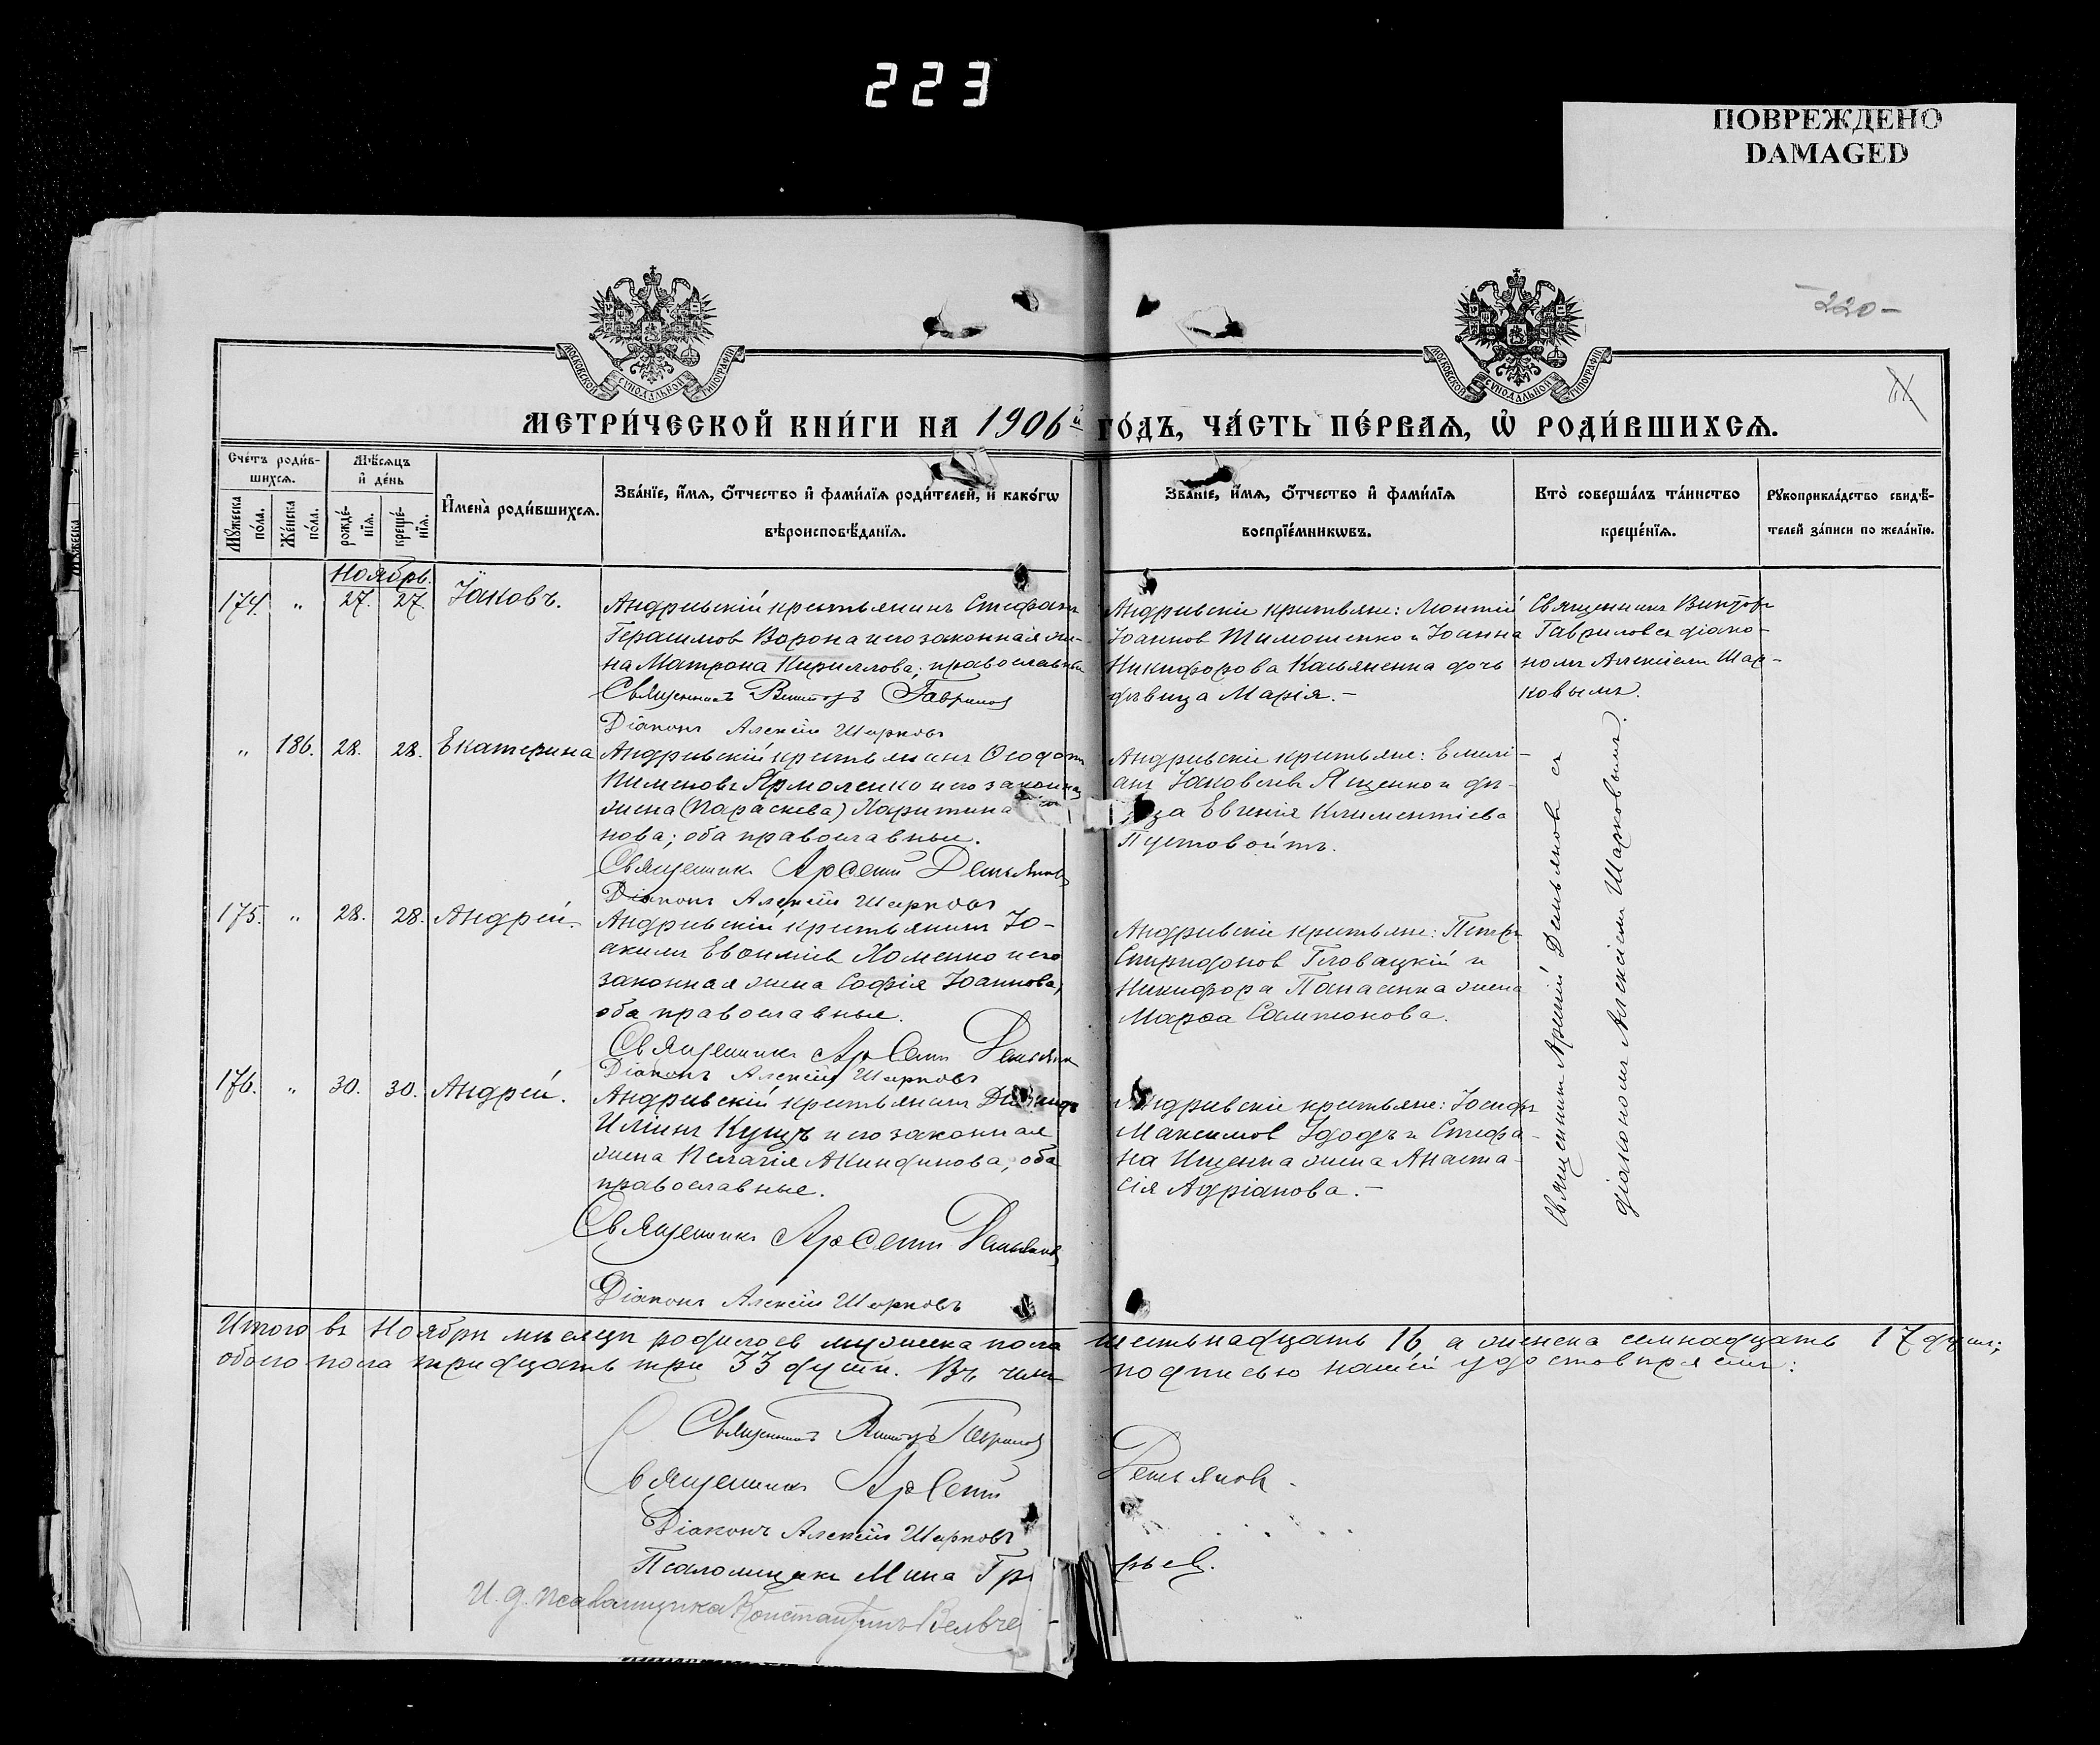 223
ПОВРЕЖДЕНО
DAMAGED
220 –
МОСКОВСКОЙ СѴНОДАЛЬНОЙ ТИПОГРАФІИ
МОСКОВСКОЙ СѴНОДАЛЬНОЙ ТИПОГРАФІИ
МЕТРИ́ЧЕСКОЙ КНИ́ГИ НА 1906й ГО́ДЪ, ЧА́СТЬ ПЕ́РВАѦ, Ѡ҆ РОДИ́ВШИХСѦ.
Сче́тъ роди́в-
шихсѧ.
Мꙋ́жеска по́ла.
Же́нска по́ла.
Мѣ́сѧцъ
и҆ де́нь
рожде́-
нїѧ.
креще́-
нїѧ.
И҆мена̀ роди́вшихсѧ.
Зва́нїе, и҆́мѧ, ѻ҆́тчество и҆ фами́лїѧ роди́телей, и҆ како́гѡ
вѣроисповѣ́данїѧ.
Зва́нїе, и҆́мѧ, ѻ҆́тчество и҆ фами́лїѧ
воспрїе́мникѡвъ.
Кто̀ соверша́лъ та́инство
креще́нїѧ.
Рꙋкоприкла́дство свидѣ́-
телей за́писи по жела́нїю.
Ноябрь.
174. " 27. 27. Іаковъ.
Андреевскій крестьянинъ Стефанъ
Герасимов Ворона и его законная же-
на Матрона Кириллова; православные
Священникъ Викторъ Гаврилов
Діаконъ Алексій Шарковъ
Андреевскіе крестьяне: Леонтій
Іоаннов Тимошенко и Іоанна
Никифорова Касьяненка дочь
дѣвица Марія. –
Священникъ Викторъ
Гаврилов съ діако-
номъ Алексіемъ Шар-
ковымъ.
" 186. 28. 28. Екатерина
Андреевскій крестьянинъ Ѳеодотъ
Пименовъ Ярмоленко и его законная
жена (Параскева) Харитина
нова; оба православные.
Священникъ Арсеній Демьянов
Діаконъ Алексій Шарковъ
Андреевскіе крестьяне: Емилі-
анъ Іаковлевъ Ященко и дѣ-
ица Евгенія Климентіева
Пустовойтъ.
175. " 28. 28. Андрей.
Андреевскій крестьянинъ Іо-
акимъ Евѳиміев Хоменко и его
законная жена Софія Іоаннова,
оба православные.
Священникъ Арсеній Демьянов
Діаконъ Алексій Шарковъ
Андреевскіе крестьяне: Петръ
Спиридонов Гловацкій и
Никифора Панасенка жена
Марѳа Самсонова.
176. " 30. 30. Андрей.
Андреевскій крестьянинъ
Иліинъ Куцъ и его законная
жена Пелагія Акиндинова, оба
православные.
Священникъ Арсеній Демьянов
Діаконъ Алексій Шарковъ
Андреевскіе крестьяне: Іосифъ
Максимов Удодъ и Стефа-
на Ищенка жена Анаста-
сія Адріанова. –
Священникъ Арсеній Демьянов съ
діакономъ Алексіемъ Шарковымъ.
Итого въ Ноябрѣ мѣсяцѣ родилось мужеска пола шестьнадцать 16, а женска семнадцать 17 душъ;
обоего пола тридцать три 33 души. Въ чемъ подписью нашей удостовѣряемъ:
Священникъ Викторъ Гаврилов
Священникъ Арсеній Демьянов.
Діаконъ Алексій Шарковъ
Псаломщикъ Мина Гр рьев.
И. д. псаломщика Константинъ Вельче